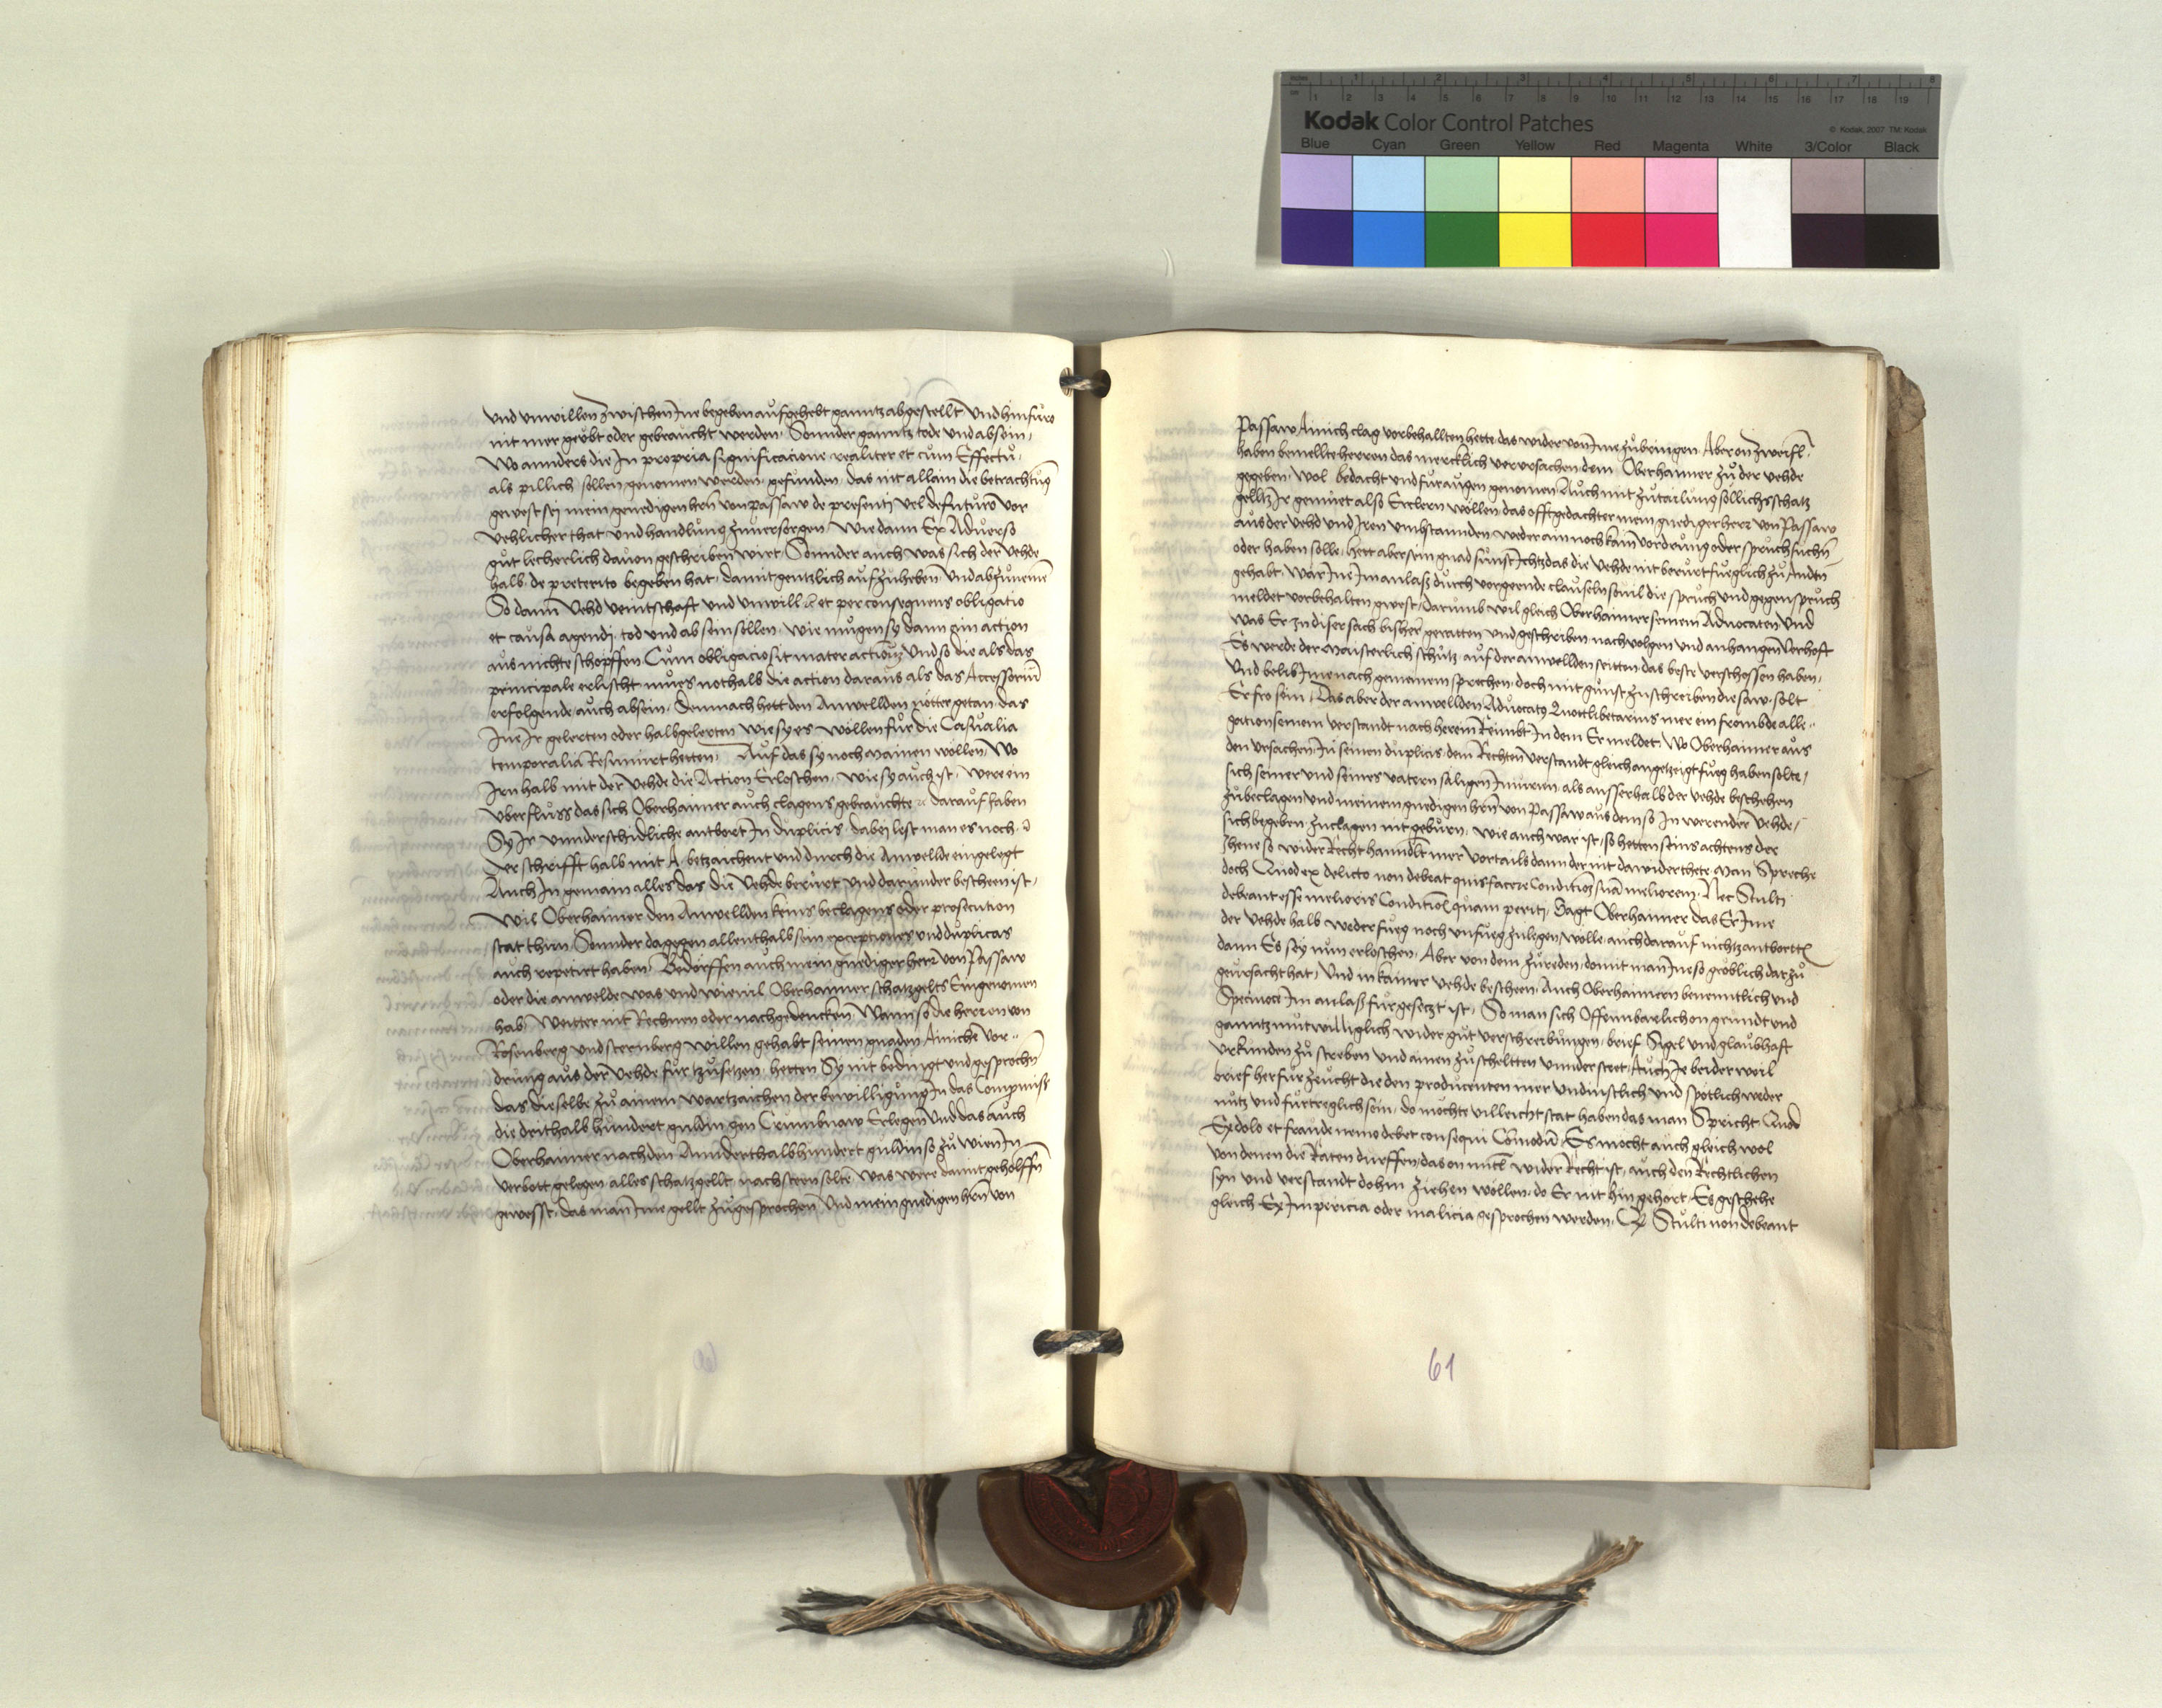 Kodak Color Control Patches
© Kodak, 2007 TM: Kodak
Blue Cyan Green Yellow Red Magenta White 3/Color Black
vnd vnwillen zwischen Jne begeben aufgehebt ganntz abgestellt vnd hinfuro
nit mer geübt oder gebraucht werden, Sonnder ganntz tode vnd absein,
Wo annders die In propria significacione realiter et cum Effectu,
als pillich sollen genomen werden, gefunden, das nit allain die betrachtung
gewest sej mein genedigen hern von passaw de presenti vel de futuro vor
vehlicher that vnd handlung zuuersorgen Wie dann Ex Aduerso
gut lecherlich dauon geschriben wirt, Sonnder auch was sich der vehde
halb, de preterito begeben hat, damit gentzlich aufzuheben vnd abzunemen
So dann Vehd veintschaft vnd vnwill et per consequens obligatio
et causa agendi, tod vnd ab sein sollen, wie mugen sy dann ein action
aus nichte schopffen Cum obligacio sit mater action vnd so die als das
principale erlischt mues nothalb die action daraus als das Accessorium
erfolgende auch absein, Demnach hett den Anwellden notter getan, das
Jne Jr gelerten oder halbgelerten wie sy es wöllen fur die Casualia
temporalia Resumirt hetten, Auf das sy noch mainen wöllen, Wo
Jrn halb mit der Vehde die Action Erloschen, wie sy auch ist, were ein
vberfluss das sich Oberhaimer auch clagens gebrauchte darauf haben
Sy Jr vnnderschidliche antbort In duplicis, dabej lest man es noch
Der schrifft halb mit A betzaichent vnd durch die Anwellde eingelegt
Auch In gemain alles das die Vehde berürt vnd darunder bescheen ist,
Wil Oberhaimer den Anwellden keins beclagens oder prosecution
stat thun Sonnder dagegen allenthalb sein exceptiones vnd duplicas
auch repetirt haben, Bedörffen auch mein gnediger herr von Passaw
oder die anwelde was vnd wieuil Oberhaimer schatzgelts Eingenomen
hab, Weitter nit Rechnen oder nachgedencken, Wann so die herren von
Rosenberg vnd sternberg willen gehabt seinen gnaden Ainichen vor
drung aus der Vehde fur tzusetzen, hetten Sy nit bedingt vnd gesprochen
das dieselbe zu ainem wartzaichen der bewilligung In das Compromiss
die drithalb hundert guldin gen Crumbnaw Erlegen vnd das auch
Oberhaimer nach den Annderthalbhundert guldin so zu wien In
verbott gelegen alles schatzgellt, nachsteen solte, was were damit geholffen
gewesst, das man Jme gellt zugesprochen vnd mein gnedigen hern von
Passaw Ainich clag vorbehallten hette das wider von Jme zubringen Aber on zweifl,
haben bemellte herren das mercklich verursachen dem Oberhaimer zu der vehde
gegeben, wol bedacht vnd fur augen genomen Auch mit zutailung sollichs schatz
gelltz Jr gemüet also Ercleren wöllen, das offtgedachter mein gnediger herr von Passaw
aus der vehd vnd Jren vmbstannden weder ain noch kain vordrung oder spruch suchen
oder haben solle, hett aber sein gnad sunst Ichtz das die Vehde nit berurt fueglich zu Andten
gehabt, war Jne Im anlass durch vorgeende clauseln souil die spruch vnd gegenspruch
meldet vorbehalten gwest, Darumb wil gleich Oberhaimer seinem Aduocaten vnd
was Er zu diser sach bisher geratten vnd geschriben nachuolgen vnd anhangen Verhoft
Es werde der Maisterlich schutz auf der anwellden seitten das beste verschossen haben,
vnd belib Jme nach gemeinem sprechen, doch mit gunst zuschreiben die saw, solt
Er fro sein, Das aber der anwellden Aduocatus Quottlibetarius mer ein frömbde alle
gation seinem verstandt nach herein Reimbt In dem Er meldet, Wo Oberhaimer aus
den vrsachen In seinen duplicis, dem Rechten verstandt gleich angetzeigt fueg haben solte,
sich seiner vnd seines vatern saligen Iniurien als ausserhalb der vehde beschehen
zubeclagen vnd meinem gnedigen hern von Passaw aus dem so In werender Vehde,
sich begeben, zuclagen nit geburn, wie auch war ist, so hetten seins achtens der
Jhene so wider Recht hanndlt mer vortails dann der nit dawider thete Man Spreche
doch Quod ex delicto non debeat quis facere Condition suam meliorem, Nec Stulti
debeant esse melioris Condition quam periti, Sagt Oberhaimer das Er Jme
der Vehde halb weder fueg noch vnfueg zulegen wölle, auch darauf nichtz antbortt
dann Es sey nun erloschen, Aber von dem zureden, domit man Jne so gröblich dartzu
geursacht hat, Vnd in kainer vehde bescheen, Auch Oberhaimern benenntlich vnd
Specifice Im anlass fur gesetzt ist, So man sich Offennbarlich on grundt vnd
ganntz mutwilliglich wider gut verschreibungen, brief Sigel vnd glaubhaft
vrkunden zu streben vnd ainen zu scheltten vnnderstet, Auch Je beider weil
brief herfur zeucht die den producenten mer vndinstlich vnd spötlich weder
nutz vnd fürtreglich sein, do möchte villeicht stat haben das man Spricht Quod
Ex dolo et fraude nemo debet consequi Comodum, Es mocht auch gleich wol
von denen die Raten durffen, das on mitl wider Recht ist, auch den Rechtlichen
syn vnd verstandt dohin ziehen wöllen, do Er nit hin gehort, Es geschehe
gleich Ex Impericia oder malicia gesprochen werden, Quod Stulti non debeant
61